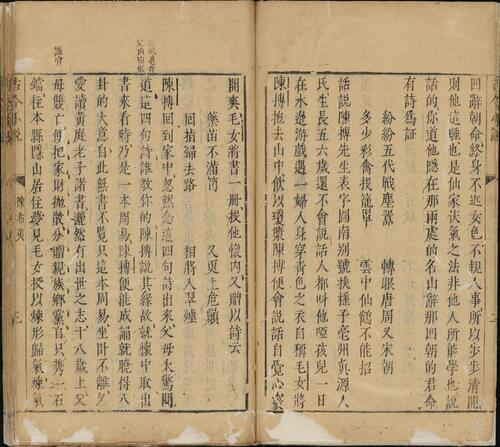 四辭朝命終身不近女色不親人事所以步步清閒
則他這睡也是仙家伏氣之法非他人所能學也說
話的你道他隱在那兩處的名山辭那四朝的君命
有詩為証
紛紛五代戰塵囂　轉眼唐周又宋朝
多少彩禽投籠罩　雲中仙鶴不能招
話說陳摶先生表字圖南別號扶搖子亳州眞源人
氏生長五六歲還不會說話人都呌他啞孩兒一日
在水邊游戲遇一婦人身穿青色之衣自稱毛女將
陳摶抱去山中飲以瓊漿陳摶便會說話自覺心竅
開爽毛女將書一冊投他懷內又贈以詩云
藥苗不滿笥　又更上危巔
回指歸去路　相將入翠烟
陳摶回到家中忽然念這四句詩出來父母大驚問
道這四句詩誰教你的陳摶說其緣故就懷中取出
書來看時乃是一本周易陳摶便能成誦就曉得八
卦的大意自此無書不覽只這本周易坐臥不離又
愛讀黃庭老子諸書洒然有出世之志十八歲上父
母雙亡便把家財拋散分贈親族鄉黨自只携一石
鐺往本縣隱山居住夢見毛女授以煉形歸氣煉氣
古今小說
陳希夷
三